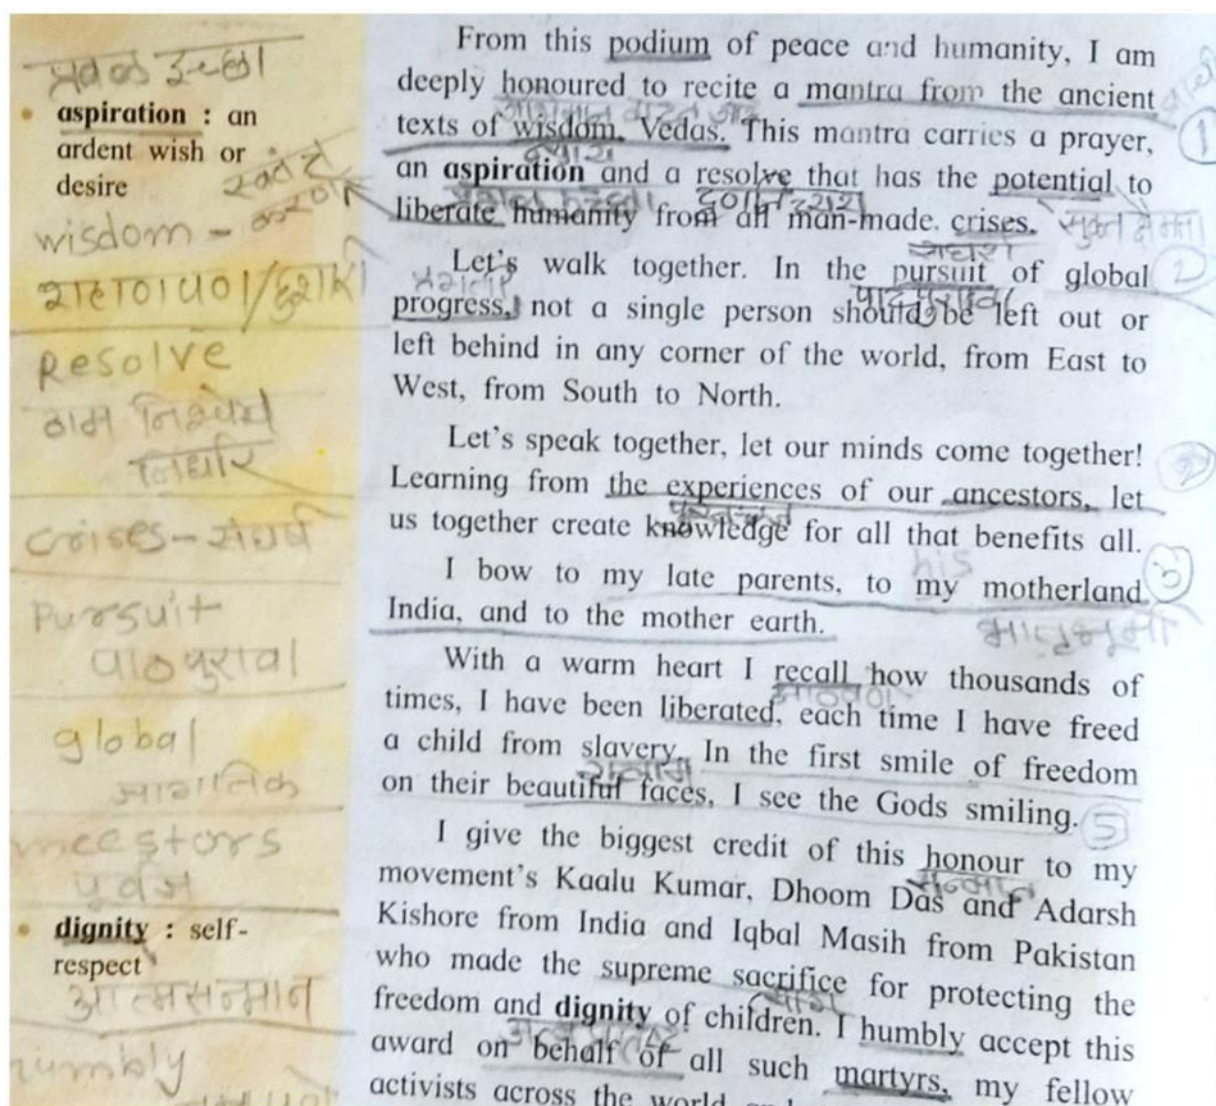 प्रबळ इच्छा
• aspiration : an
ardent wish or
desire
wisdom -
शहाणपणा/हुशारी
Resolve
ठाम निश्चय
निर्धार
crises - संघर्ष
Pursuit
पाठपुरावा
global
जागतिक
ancestors
पूर्वज
• dignity : self-
respect
आत्मसन्मान
humbly
From this podium of peace and humanity, I am
deeply honoured to recite a mantra from the ancient
texts of wisdom, Vedas. This mantra carries a prayer,
1
an aspiration and a resolve that has the potential to
liberate humanity from all man-made crises.
Let's walk together. In the pursuit of global
2
progress, not a single person should be left out or
पाठपुरावा
left behind in any corner of the world, from East to
West, from South to North.
Let's speak together, let our minds come together!
Learning from the experiences of our ancestors, let
us together create knowledge for all that benefits all.
his
I bow to my late parents, to my motherland
3
India, and to the mother earth.
मातृभूमी
With a warm heart I recall how thousands of
आठवण
times, I have been liberated, each time I have freed
a child from slavery. In the first smile of freedom
on their beautiful faces, I see the Gods smiling.
5
I give the biggest credit of this honour to my
सन्मान
movement's Kaalu Kumar, Dhoom Das and Adarsh
Kishore from India and Iqbal Masih from Pakistan
who made the supreme sacrifice for protecting the
freedom and dignity of children. I humbly accept this
award on behalf of all such martyrs, my fellow
activists across the world and